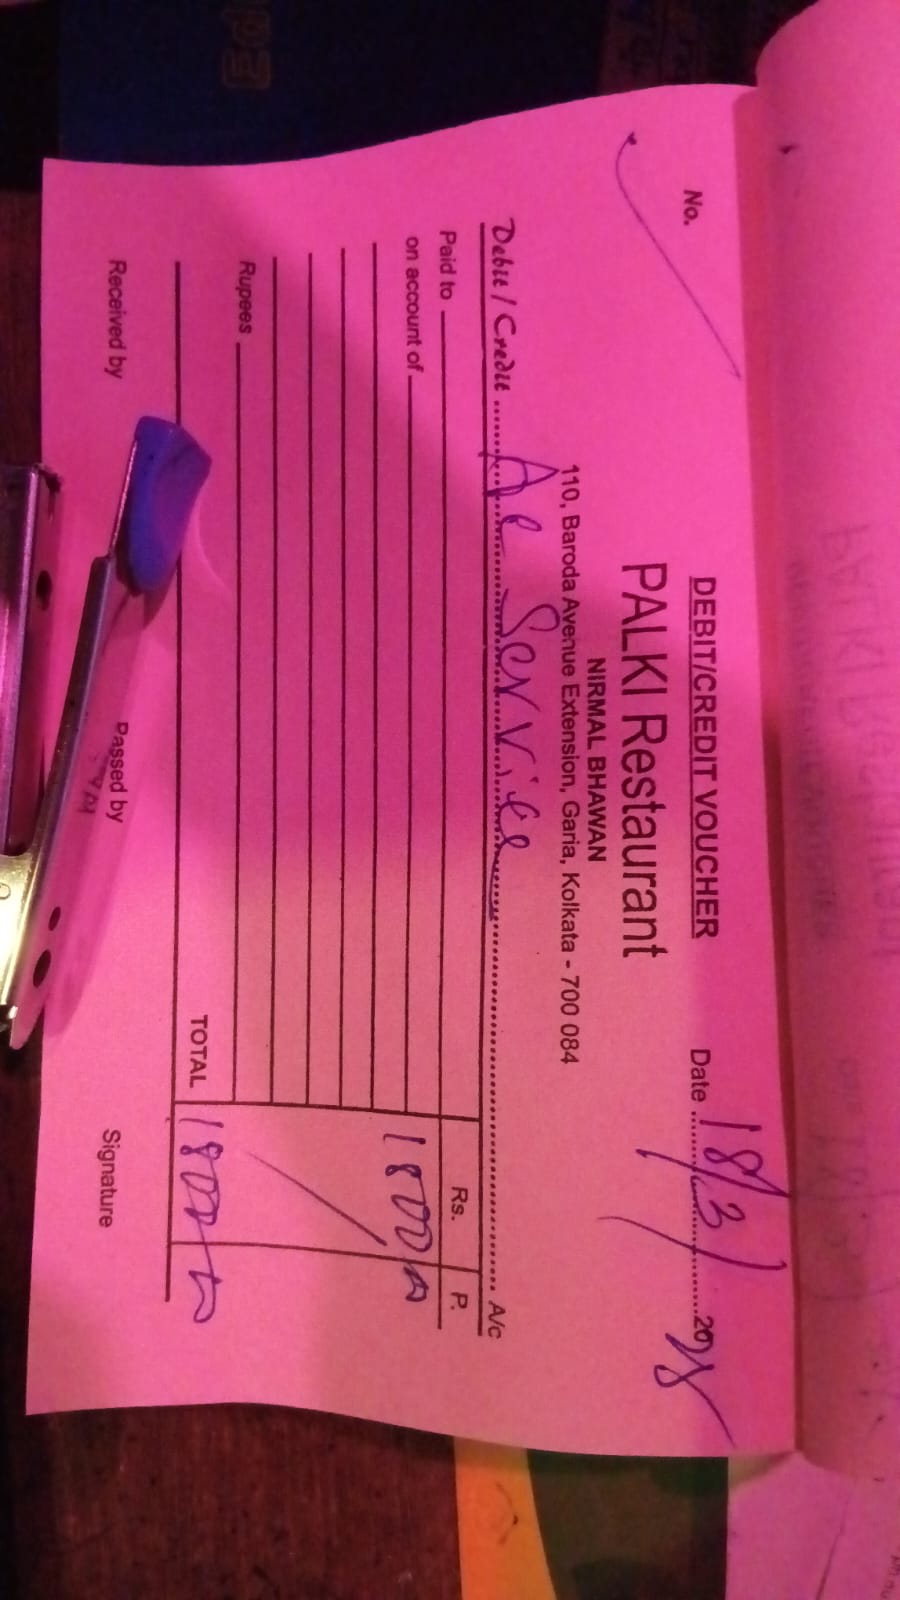 DEBIT/CREDIT VOUCHER
No.
Date 18/3/ 20
PALKI Restaurant
NIRMAL BHAWAN
110, Baroda Avenue Extension, Garia, Kolkata - 700 084
Debit / Credit Ac Service A/c
Paid to Rs. P.
on account of 1800
Rupees
TOTAL 1800
Received by Passed by Signature